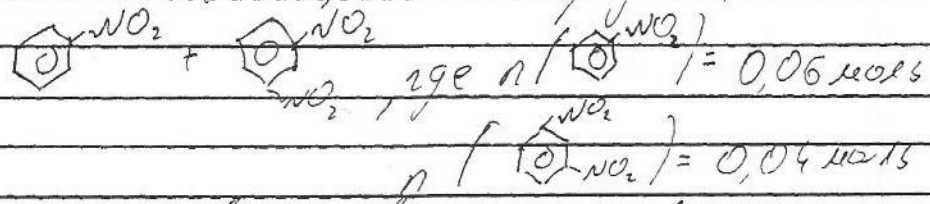 NO₂ + NO₂
NO₂, где n( NO₂ ) = 0,06 моль
NO₂
n( NO₂ ) = 0,04 моль